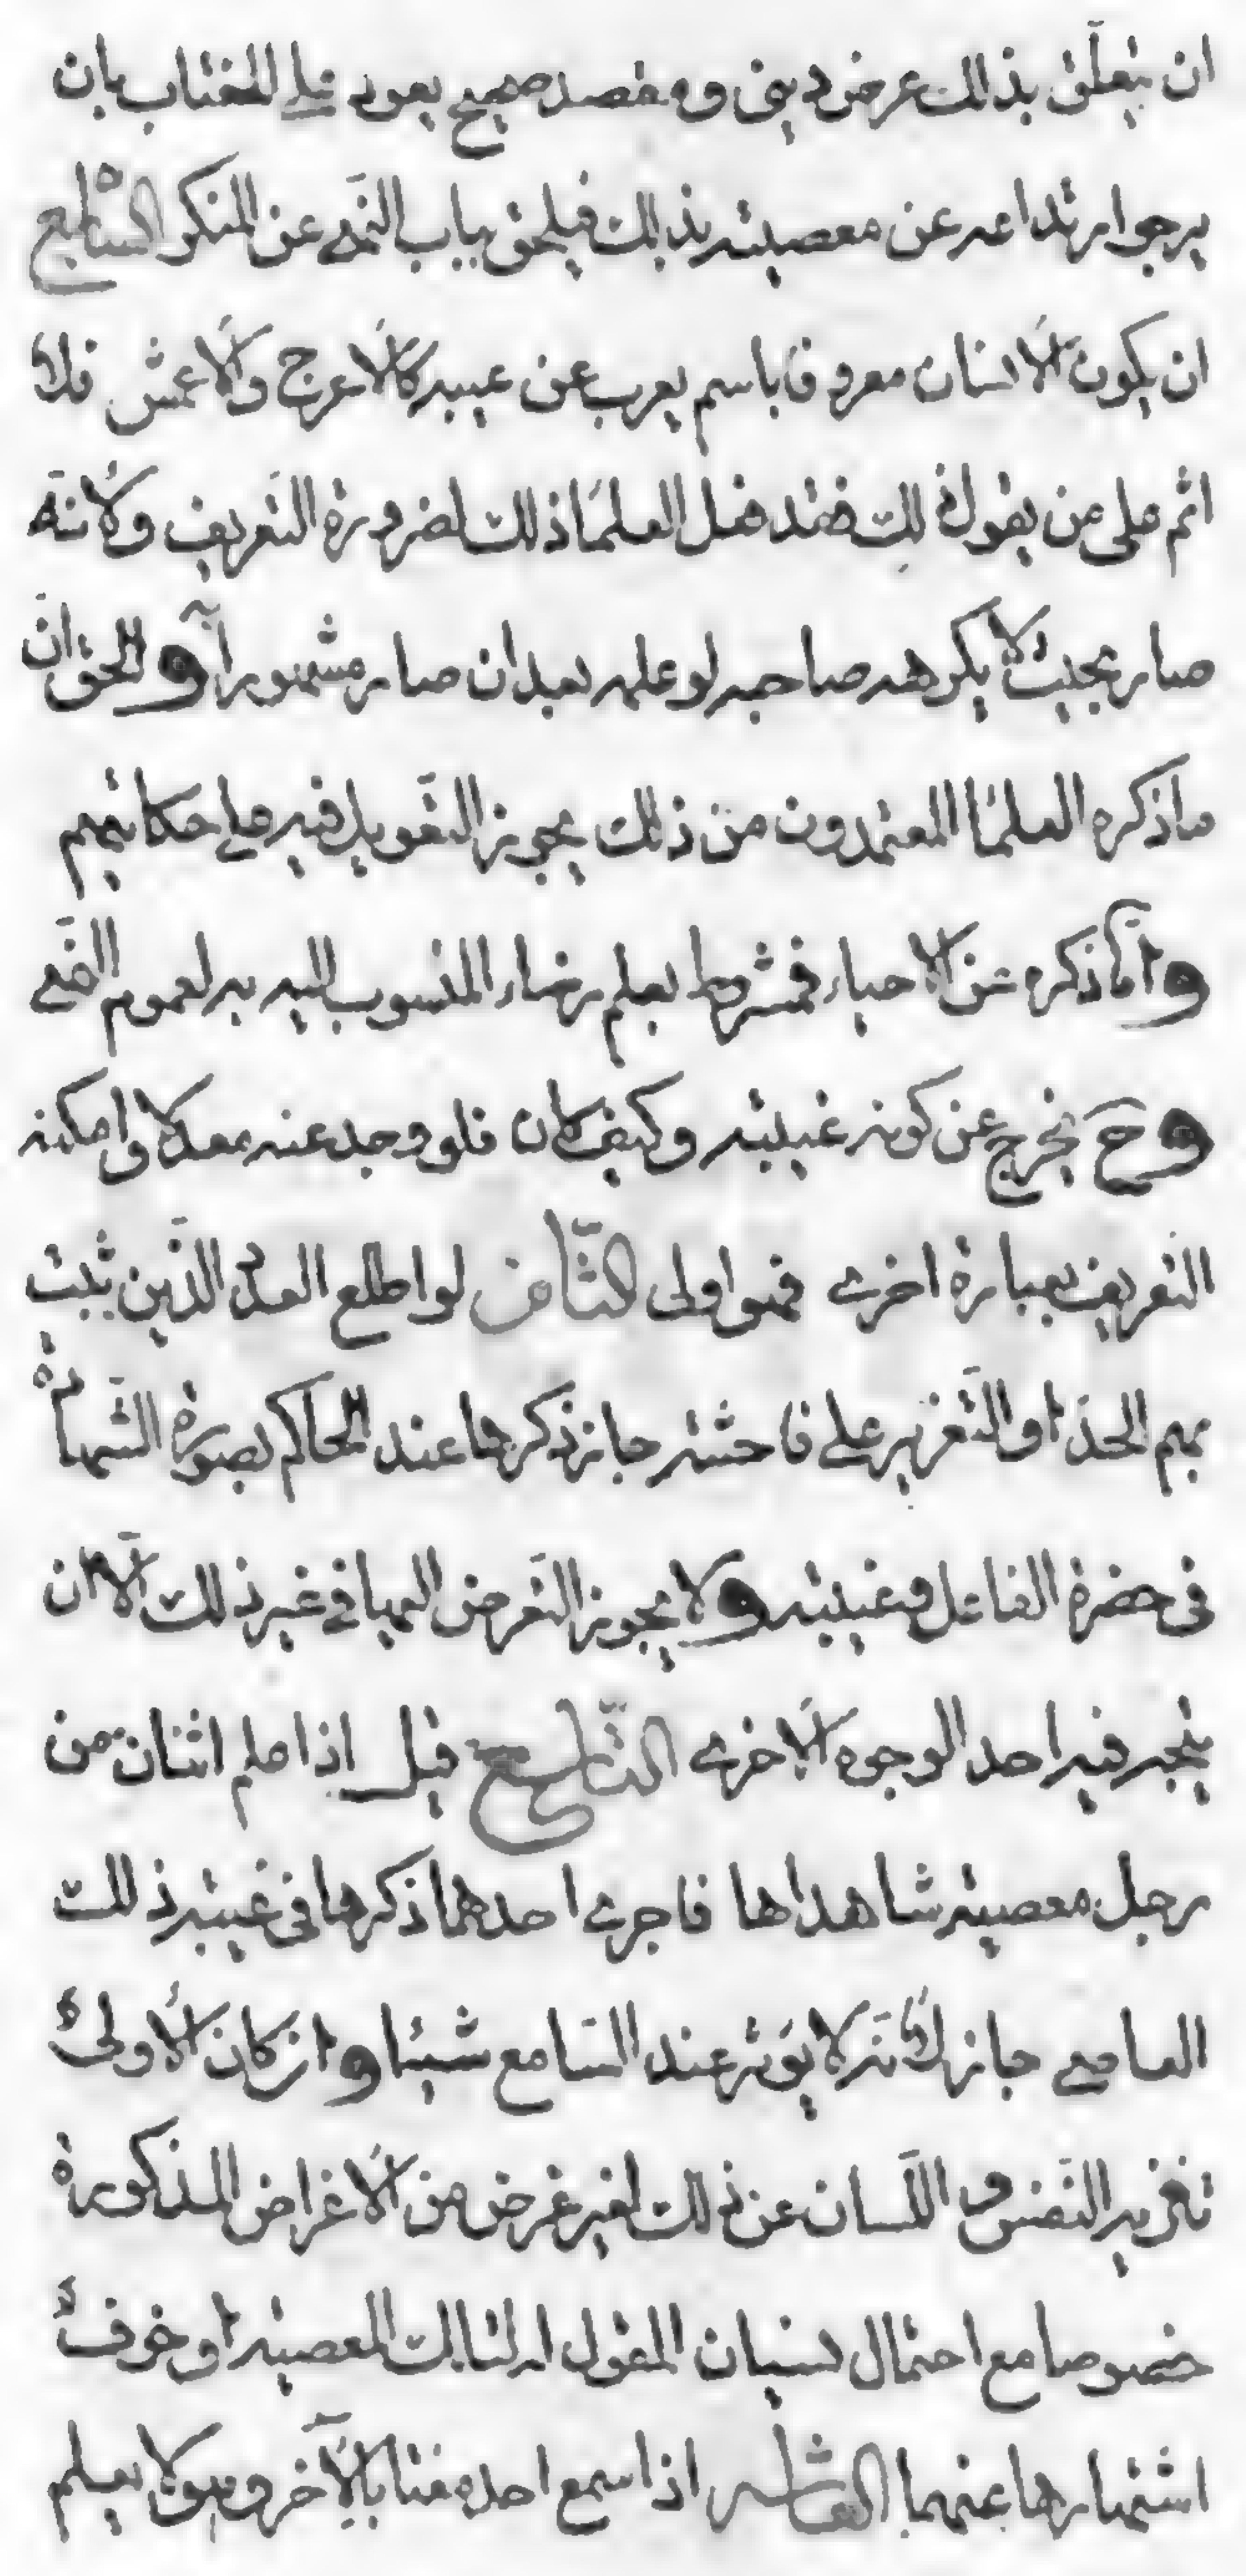 ان يتعلّق بذلك غرض ديني ومقصد صحيح يعود على المغتاب بان
يرجوا ارتداعه عن معصيته بذلك فيلحق بباب النّهي عن المنكر السّابع
ان يكون الانسان معروفا باسم يعرب عن عيبه كالاعرج والاعمش فلا
اثم على من يقول ذلك فقد فعل العلمآ ذلك لضرورة التّعريف ولانّه
صار بحيث لا يكرهه صاحبه لو علمه بعد ان صار مشهورا به والحق انّ
ما ذكره العلمآ المعتمدون من ذلك يجوز التّعويل فيه على حكايتهم
وامّا ذكره عن الاحياء فمشروط بعلم رضاء المنسوب اليه به لعموم النّهي
وح يخرج عن كونه غيبته وكيف كان فلو وجد عنه معدلا وامكنه
التعريف بعبارة اخرى فهو اولى الثّامن لو اطلع العدد الّذين يثبت
بهم الحدّ او التّعزير على فاحشته جاز ذكرها عند الحاكم بصورة الشّهادة
في حضرة الفاعل وغيبته ولا يجوز التّعرض اليها في غير ذلك الّا ان
يتجه فيه احد الوجوه الاخرى التّاسع قيل اذا علم اثنان من
رجل معصيته شاهداها فاجرى احدهما ذكرها في غيبته ذلك
العاصي جاز لأنّه لا يؤثر عند السّامع شيئا وان كان الأولى
تنزيه النّفس واللّسان عن ذلك لغير غرض من الاغراض المذكورة
خصوصا مع احتمال نسيان المقول له لتلك المعصيته او خوف
اشتهارها عنهما العاشر اذا سمع احد مغتابا لآخر وهو لا يعلم